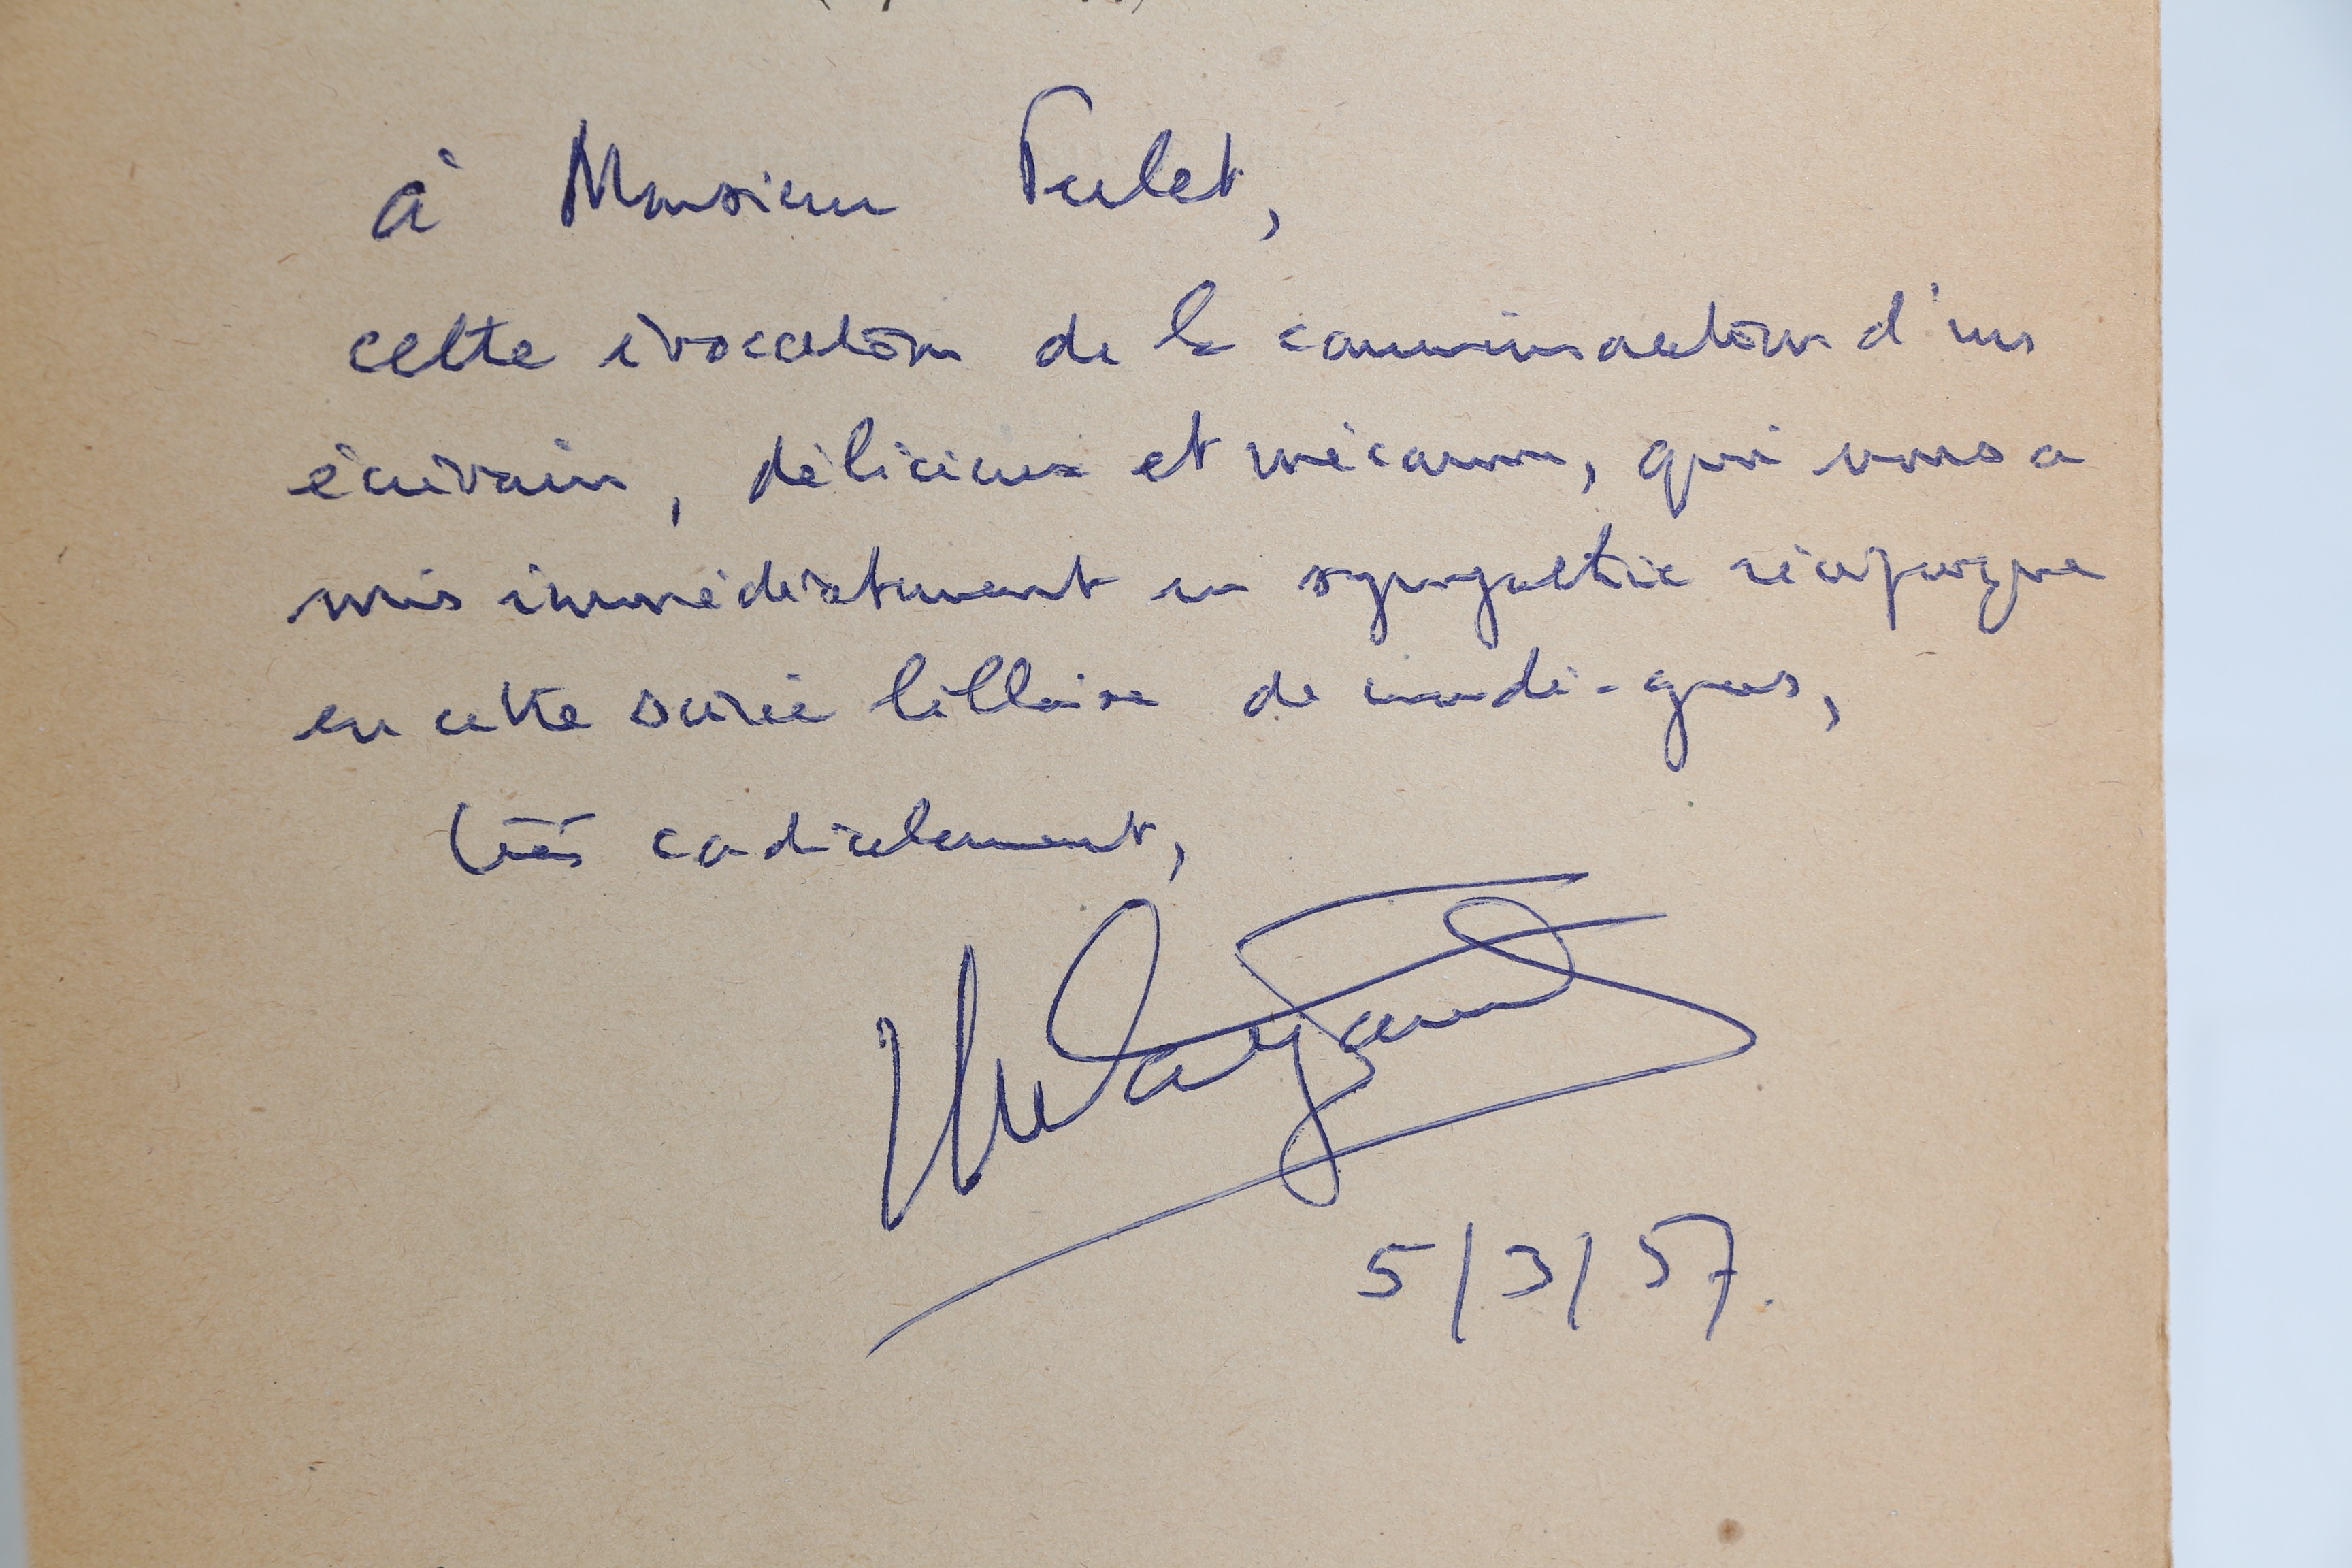 à Monsieur
cette évocation de la d'un
écrivain, délicieux et méconnu, qui nous a
mis immédiatement en sympathie réciproque
en cette soirée lilloise de mardi-gras,
très cordialement,
5/3/57.